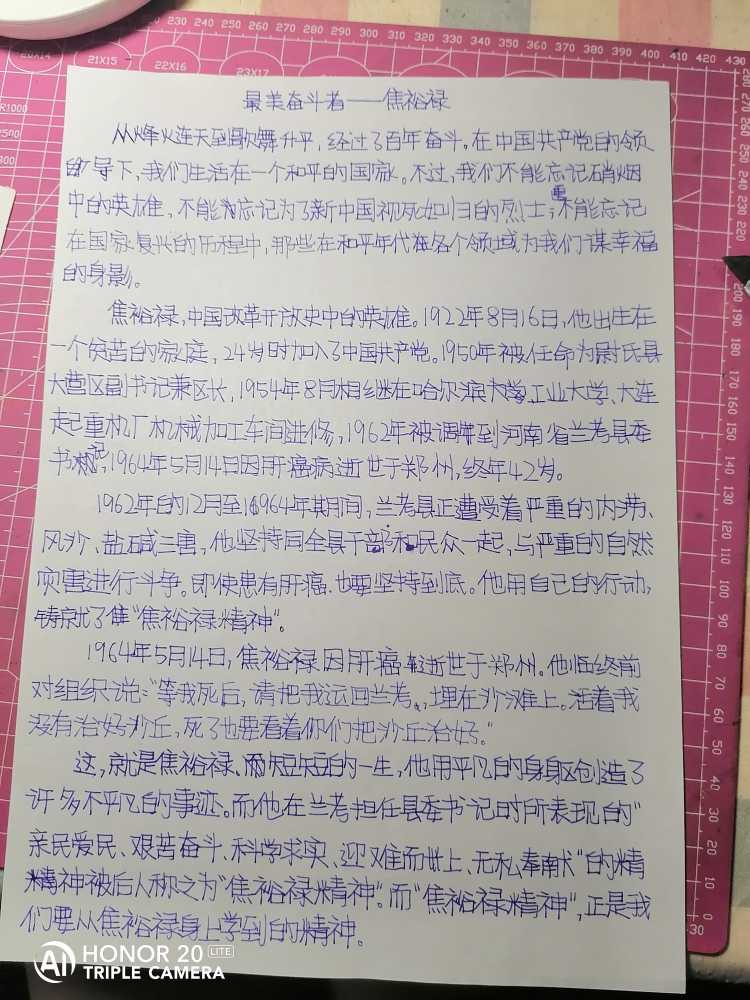 最美奋斗者——焦裕禄
从烽火连天到歌舞升平，经过了百年奋斗。在中国共产党的领
导下，我们生活在一个和平的国家。不过，我们不能忘记硝烟
中的英雄，不能忘记为了新中国视死如归的烈士；更不能忘记
在国家复兴的历程中，那些在和平年代在各个领域为我们谋幸福
的身影。
焦裕禄，中国改革开放史中的英雄。1922年8月16日，他出生在
一个贫苦的家庭，24岁时加入了中国共产党。1950年被任命为尉氏县
大营区副书记兼区长，1954年8月相继在哈尔滨大学、工业大学、大连
起重机厂机械加工车间进修，1962年被调到河南省兰考县委
书记，1964年5月14日因肝癌病逝世于郑州，终年42岁。
1962年的12月至1964年其期间，兰考县正遭受着严重的内涝、
风沙、盐碱三害，他坚持同全县干部和民众一起，与严重的自然
灾害进行斗争。即使患有肝癌，也要坚持到底。他用自己的行动，
铸就了"焦裕禄精神"。
1964年5月14日，焦裕禄因肝癌逝世于郑州。他临终前
对组织说："等我死后，请把我运回兰考，埋在沙滩上。活着我
没有治好沙丘，死了也要看着你们把沙丘治好。"
这，就是焦裕禄、而短短的一生，他用平凡的身躯创造了
许多不平凡的事迹。而他在兰考担任县委书记时所表现的"
亲民爱民、艰苦奋斗、科学求实、迎难而上、无私奉献"的精
精神被后人称之为"焦裕禄精神"。而"焦裕禄精神"，正是我
们要从焦裕禄身上学到的精神。
20X14
21X15
22X16
23X17
R1000
220 230 240 250 260 270 280 290 300 310 320 330 340 350 360 370 380 390 400 410 420 430
200
190
180
170
160
150
140
130
120
110
100
90
80
70
60
50
40
30
20
10
0
-30
AI HONOR 20 LITE
TRIPLE CAMERA